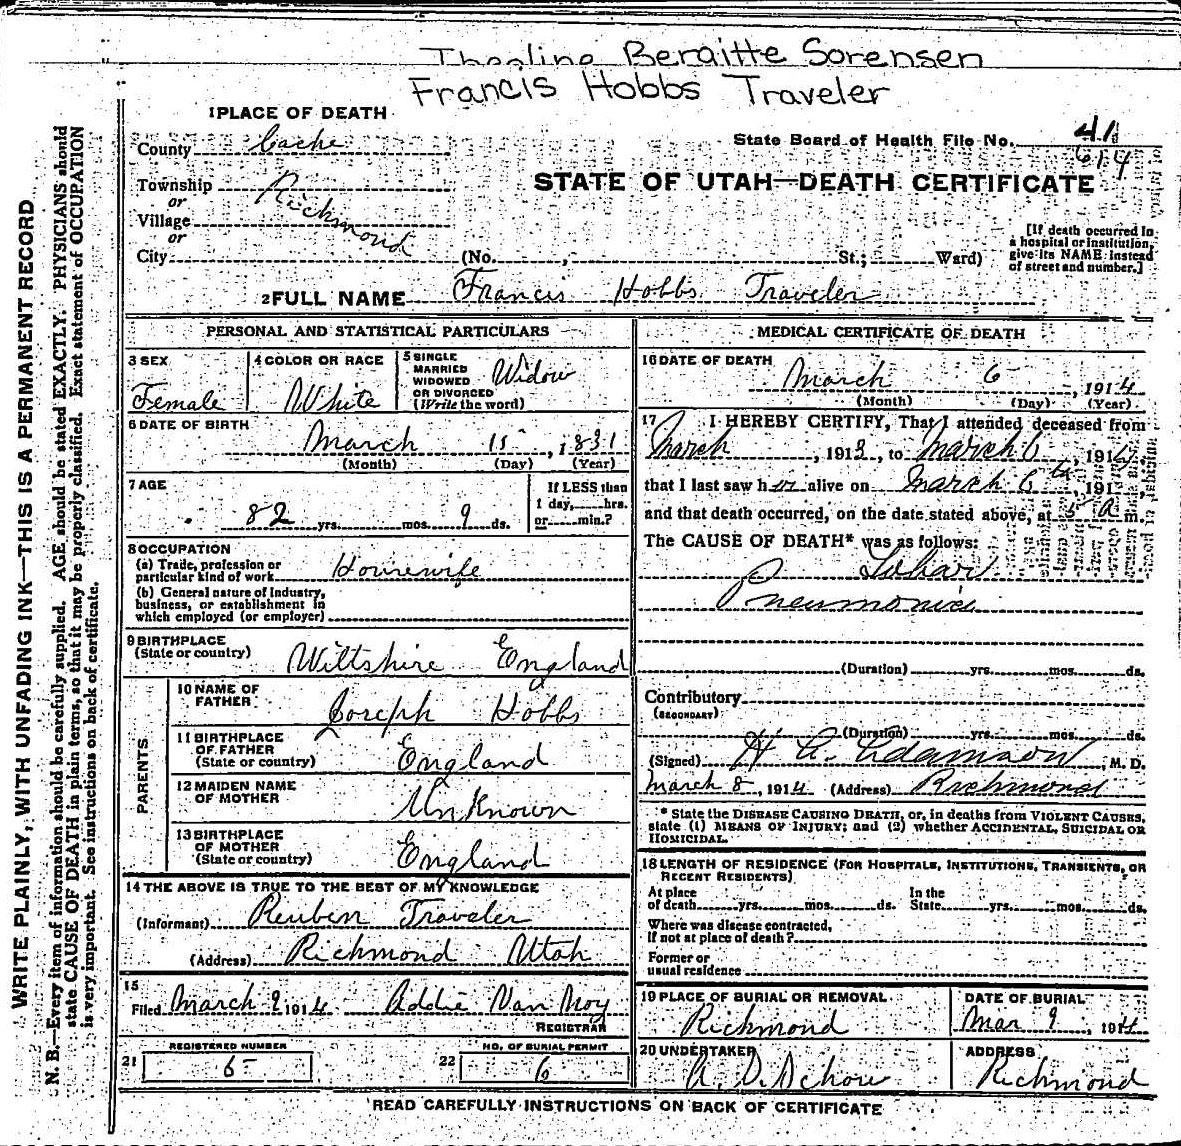 Sorensen
Francis Hobbs Traveler
1 PLACE OF DEATH
County Cache
State Board of Health File No. 41
614
Township
or
Village Richmond
or
City (No. , St.; Ward)
STATE OF UTAH—DEATH CERTIFICATE
[If death occurred in
a hospital or institution,
give its NAME instead
of street and number.]
2 FULL NAME Francis Hobbs Traveler
PERSONAL AND STATISTICAL PARTICULARS
3 SEX
Female
4 COLOR OR RACE
White
5 SINGLE
MARRIED
WIDOWED
OR DIVORCED
(Write the word)
Widow
6 DATE OF BIRTH
March 15, 1831
(Month) (Day) (Year)
7 AGE
82 yrs. mos. 9 ds.
If LESS than
1 day, hrs.
or min.?
8 OCCUPATION
(a) Trade, profession or
particular kind of work Housewife
(b) General nature of Industry,
business, or establishment in
which employed (or employer)
9 BIRTHPLACE
(State or country) Wiltshire England
PARENTS
10 NAME OF
FATHER Joseph Hobbs
11 BIRTHPLACE
OF FATHER
(State or country) England
12 MAIDEN NAME
OF MOTHER UnKnown
13 BIRTHPLACE
OF MOTHER
(State or country) England
14 THE ABOVE IS TRUE TO THE BEST OF MY KNOWLEDGE
(Informant) Reuben Traveler
(Address) Richmond Utah
15
Filed March 9 1914 Addie Van Noy
REGISTRAR
21 REGISTERED NUMBER
5
22 NO. OF BURIAL PERMIT
6
MEDICAL CERTIFICATE OF DEATH
16 DATE OF DEATH
March 6, 1914
(Month) (Day) (Year)
17 I HEREBY CERTIFY, That I attended deceased from
March, 1913, to March 6, 1914
that I last saw her alive on March 6th, 191
and that death occurred, on the date stated above, at 5 a m.
The CAUSE OF DEATH* was as follows:
Lobar
Pneumonia
(Duration) yrs. mos. ds.
Contributory
(SECONDARY)
(Duration) yrs. mos. ds.
(Signed) H A Adamson, M. D.
March 8, 1914 (Address) Richmond
* State the DISEASE CAUSING DEATH, or, in deaths from VIOLENT CAUSES,
state (1) MEANS OF INJURY; and (2) whether ACCIDENTAL, SUICIDAL OR
HOMICIDAL.
18 LENGTH OF RESIDENCE (FOR HOSPITALS, INSTITUTIONS, TRANSIENTS, OR
RECENT RESIDENTS)
At place
of death yrs. mos. ds.
In the
State yrs. mos. ds.
Where was disease contracted,
If not at place of death?
Former or
usual residence
19 PLACE OF BURIAL OR REMOVAL
Richmond
DATE OF BURIAL
Mar 9, 1914
20 UNDERTAKER
ADDRESS
Richmond
READ CAREFULLY INSTRUCTIONS ON BACK OF CERTIFICATE
WRITE PLAINLY, WITH UNFADING INK—THIS IS A PERMANENT RECORD
N. B.—Every item of information should be carefully supplied. AGE should be stated EXACTLY. PHYSICIANS should
state CAUSE OF DEATH in plain terms, so that it may be properly classified. Exact statement of OCCUPATION
is very important. See instructions on back of certificate.